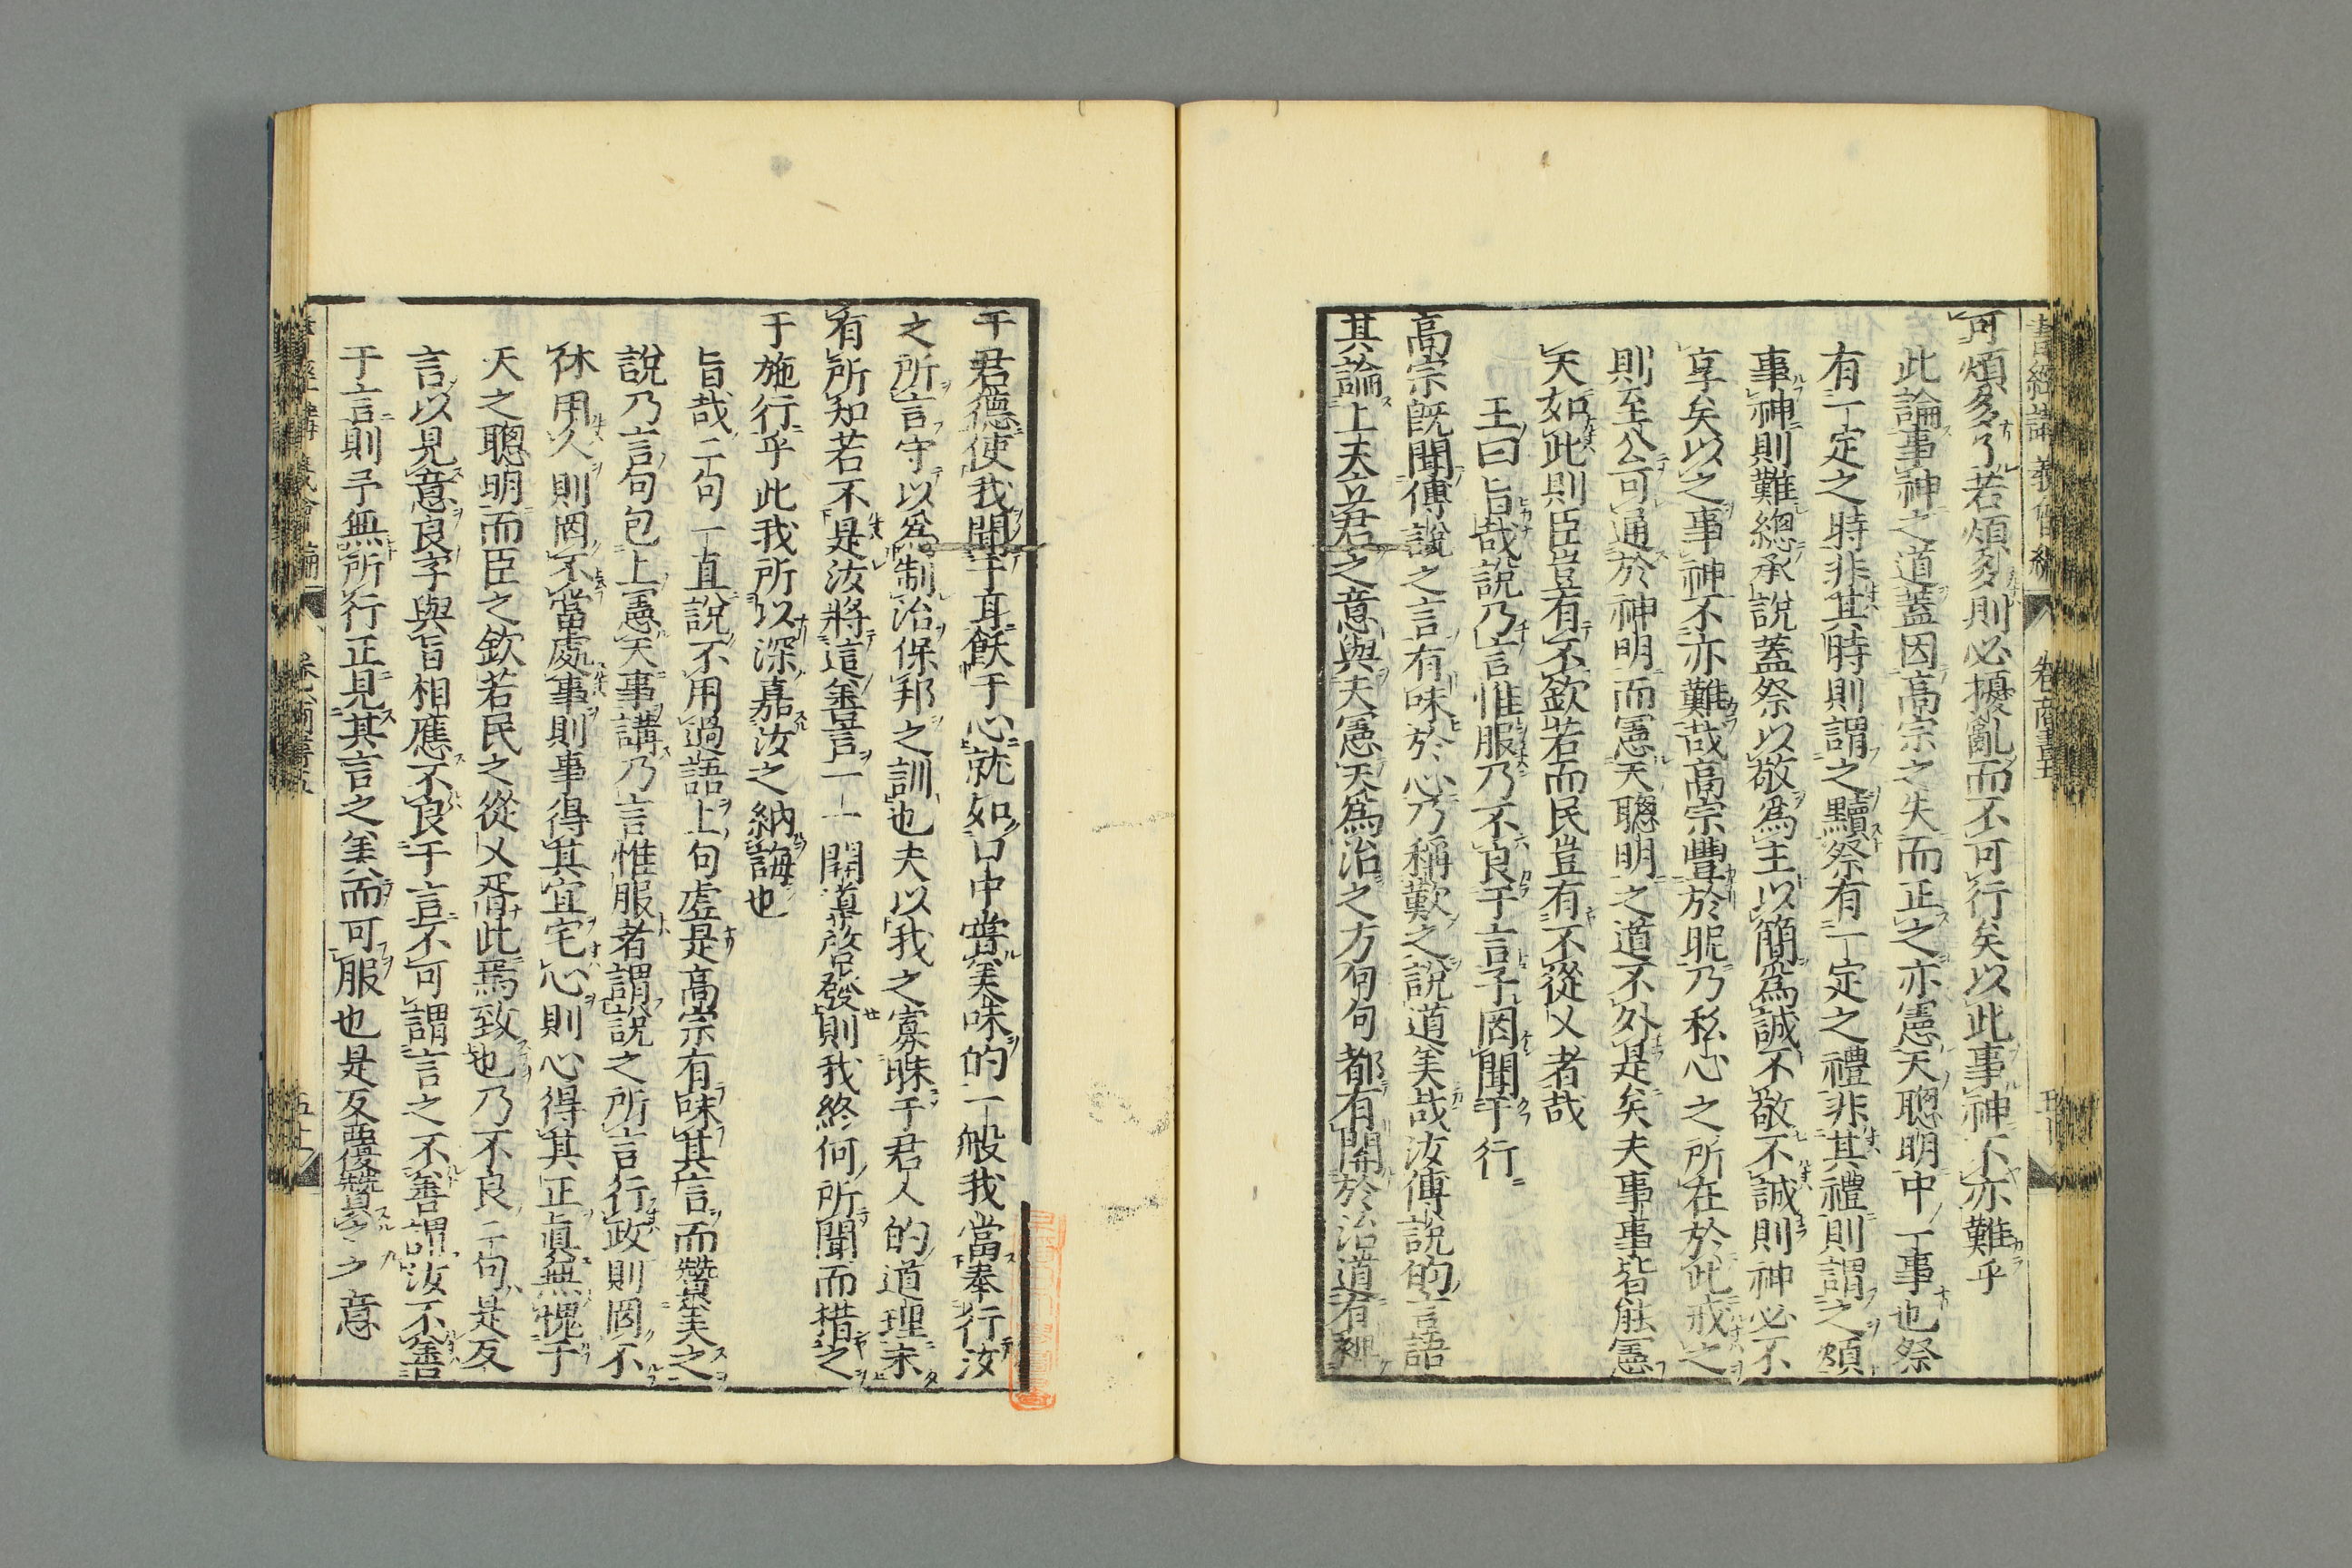 可煩多了若煩多則必擾亂而不可行矣以此事神不亦難乎
此論事神之道蓋因高宗之失而正之亦憲天聰明中一事也祭
有一定之時非其時則謂之黷祭有一定之禮非其禮則謂之煩
事神則難總承說蓋祭以敬爲主以簡爲誠不敬不誠則神必不
享矣以之事神不亦難哉高宗豐於昵乃私心之所在於此戒之
則至公可通於神明而憲天聰明之道不外是矣夫事事皆能憲
天如此則臣豈有不欽若而民豈有不從乂者哉
王曰旨哉說乃言惟服乃不良于言予罔聞于行
高宗旣聞傅說之言有味於心乃稱歎之說道美哉汝傅說的言語
其論上天立君之意與夫憲天爲治之方句句都有關於治道有裨
書經講義會編
卷 商書五
五十
于君德使我聞于耳飫于心就如口中嘗美味的一般我當奉行汝
之所言守以爲制治保邦之訓也夫以我之寡昧于君人的道理未
有所知若不是汝將這善言一一開導啓發則我終何所聞而措之
于施行乎此我所以深嘉汝之納誨也
旨哉二句一直說不用過語上句虛是高宗有味其言而贊美之
說乃言句包上憲天事講乃言惟服者謂說之所言行政則罔不
休用人則罔不當處事則事得其宜宅心則心得其正眞無愧于
天之聰明而臣之欽若民之從乂胥此焉致也乃不良二句是反
言以見意良字與旨相應不良于言不可謂言之不善謂汝不善
于言則予無所行正見其言之美而可服也是反覆贊 之意